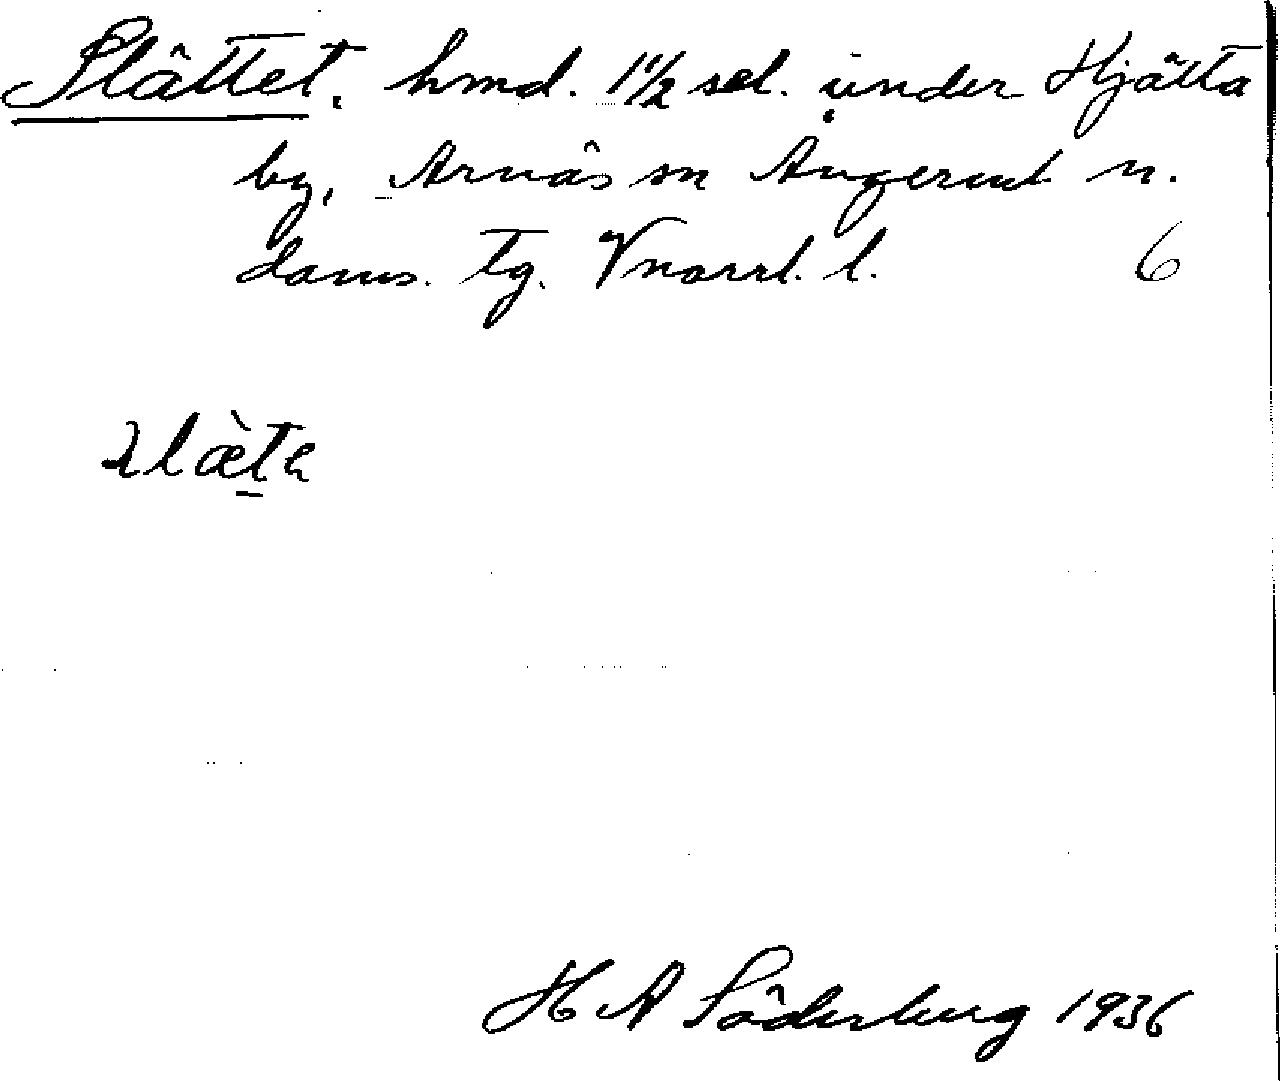 Slättet, hmd. 1 1/2 sel. under Hjätta
by, Arnäs sn Ångerml n.
doms. tg. Vnorrl. l. 6
slæ̀te
H A Söderberg 1936